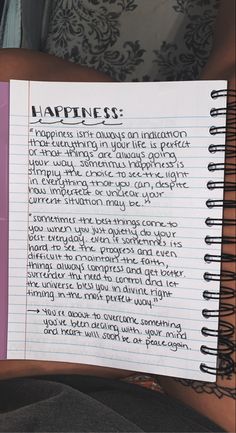 HAPPINESS:
"Happiness isn't always an indication
that everything in your life is perfect
or that things are always going
your way. sometimes happiness is
simply the choice to see the light
in everything that you can, despite
how imperfect or unclear your
current situation may be."
"sometimes the best things come to
you when you just quietly do your
best everyday. even if sometimes its
hard to see the progress and even
difficult to maintain the faith,
things always compress and get better.
surrender the need to control and let
the universe bless you in divine right
timing in the most perfect way."
→ You're about to overcome something
you've been dealing with. your mind
and heart will soon be at peace again.